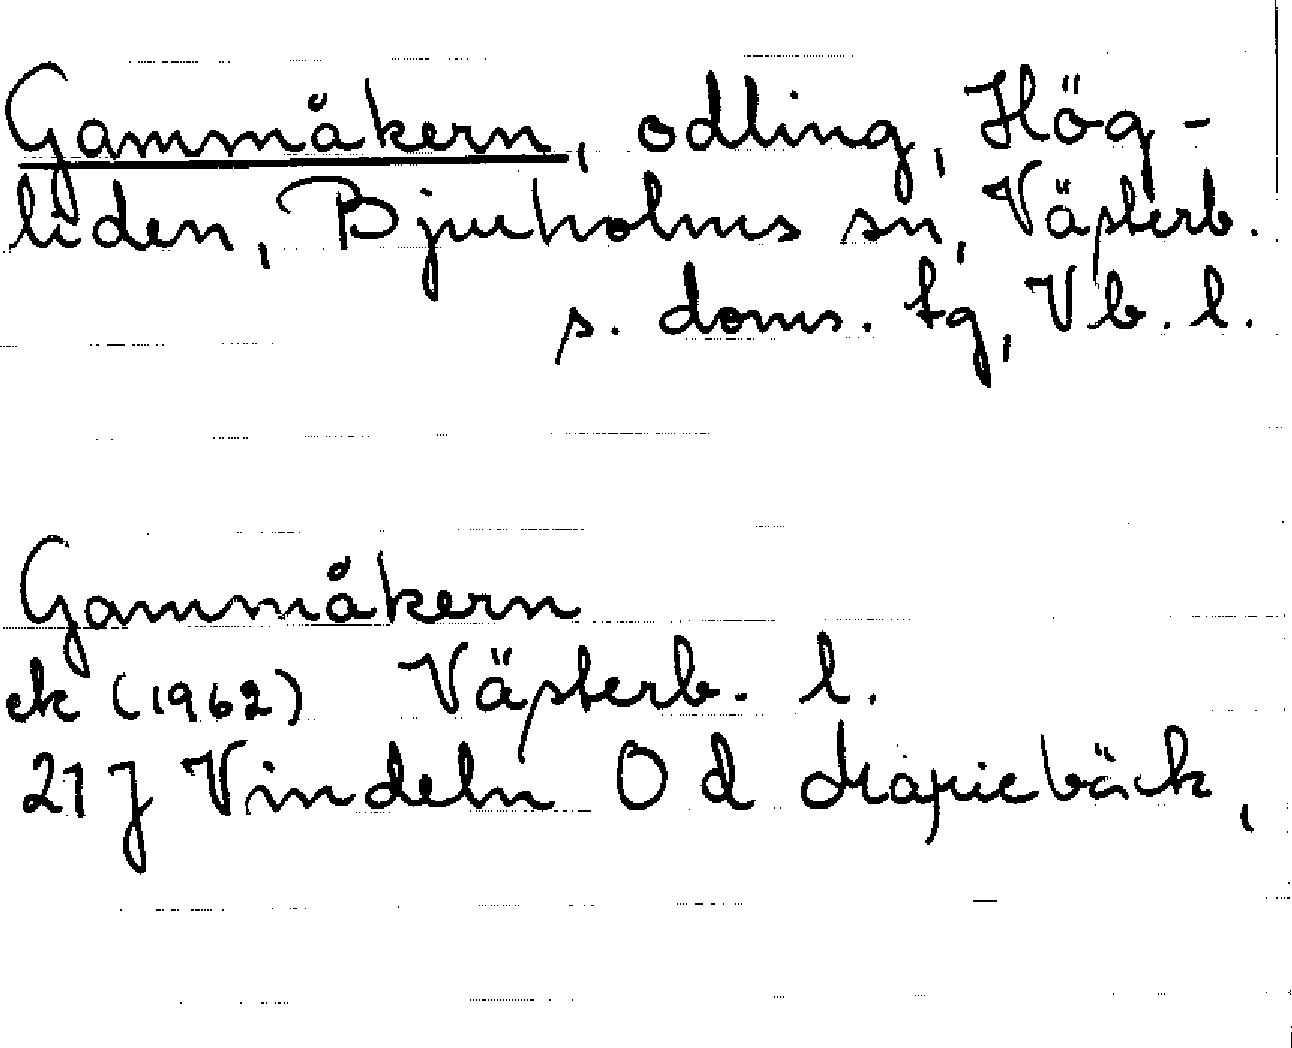 Gammåkern, odling, Hög-
liden, Bjurholms sn, Västerb.
s. doms. tg, Vb. l.
Gammåkern
ek (1962) Västerb. l.
21 J Vindeln 0 d